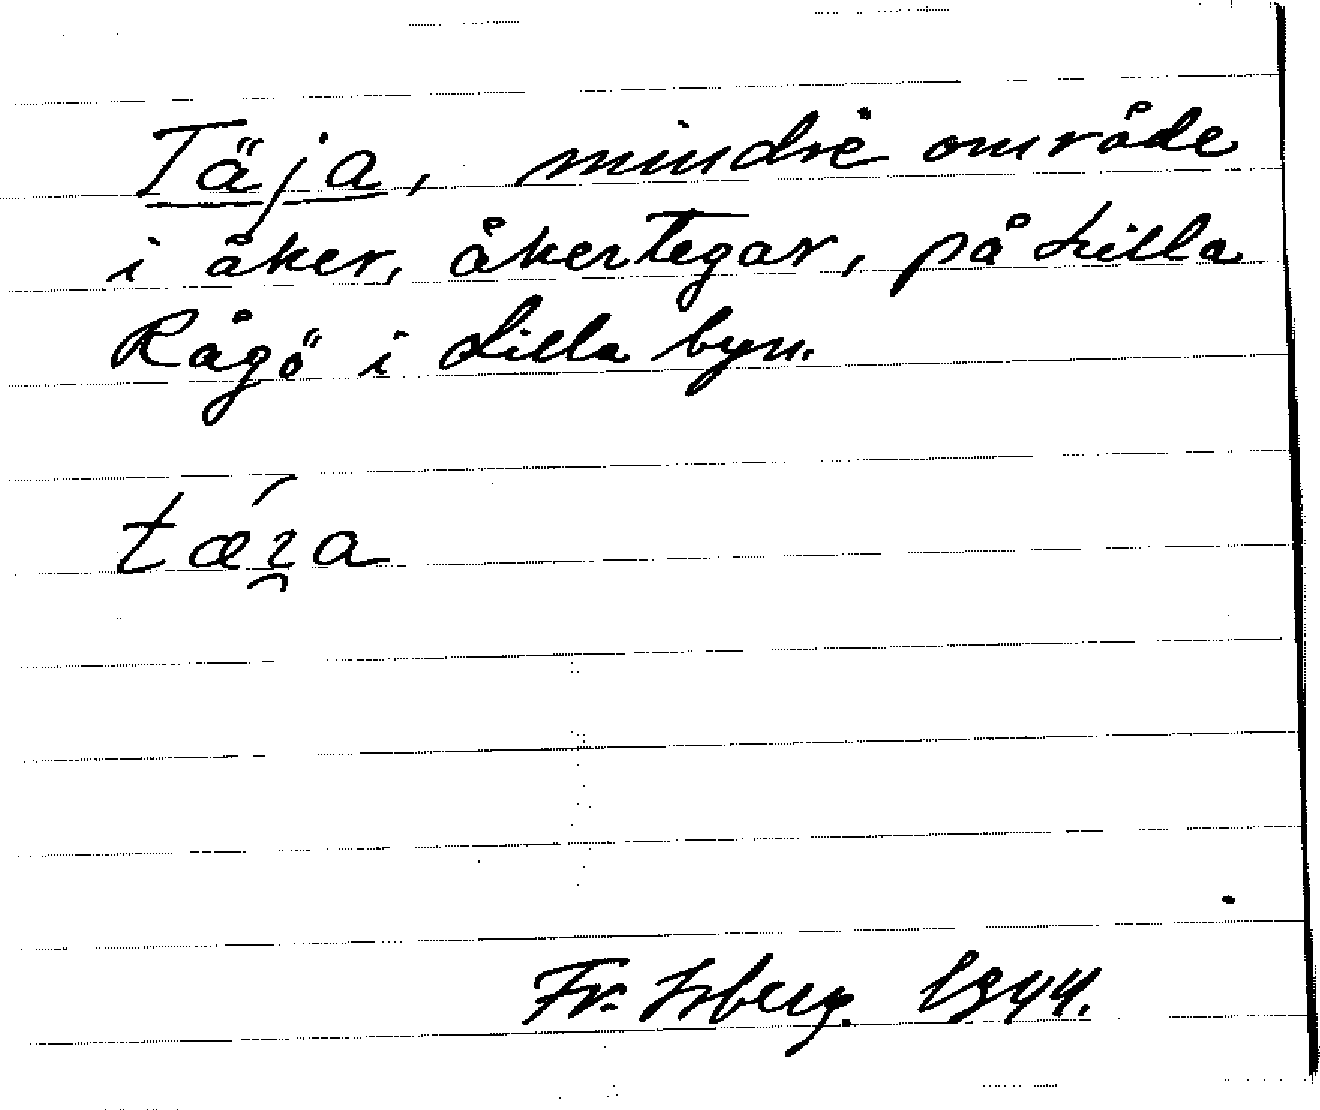 Täja, mindre område
i åker, åkertegar, på Lilla
Rågö i Lilla byn.
tæ̂ɿa
Fr. Isberg. 1944.